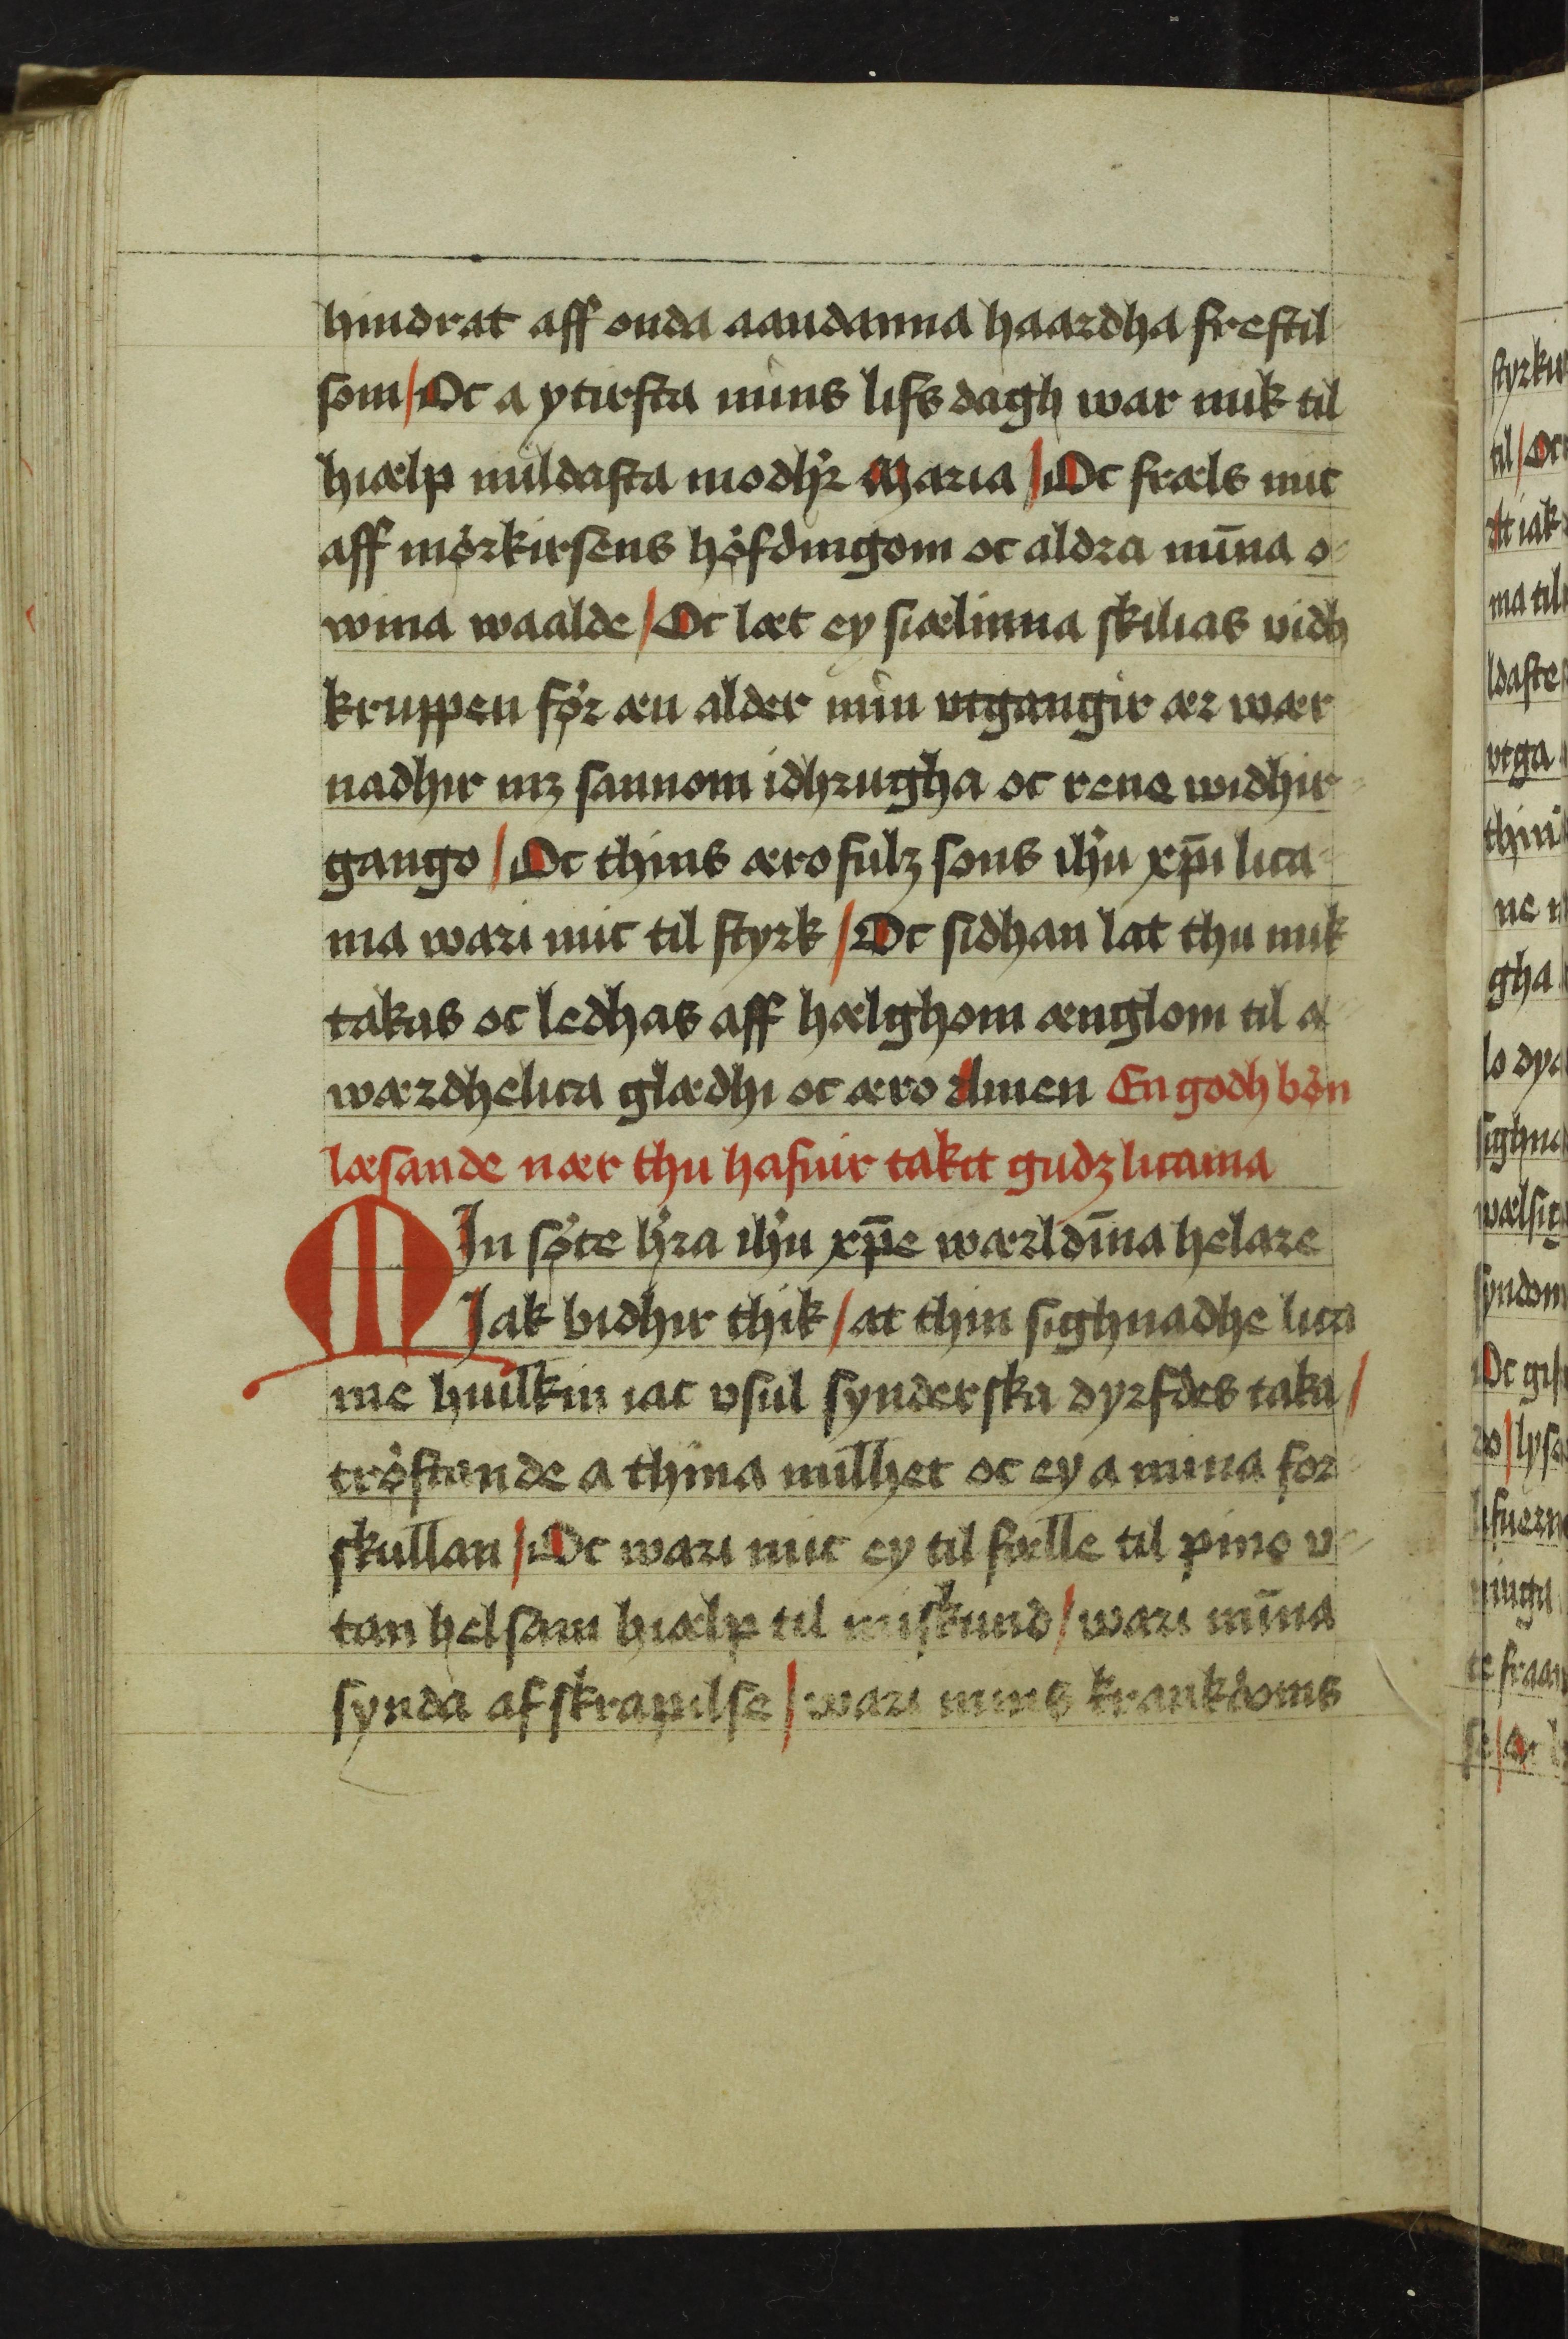 hindrat aff onda aandanna haardha frestil
som / Oc a ytirsta mins lifs dagh war mik til
hiælp mildasta modhr Maria / Oc fræls mic
aff mørkirsens høfdingom oc aldra mīna o-
wina waalde / Oc læt ey siælinna skilias vidh
kruppen før æn alder min vtgangir ær wær
nadhir mz sannom idhrugha oc rene widhir-
gango / Oc thins ærofulz sons ihu xp̄i lica-
ma wari mic til styrk / Oc sidhan lat thu mik
takas oc ledhas aff hælghom ænglom til æ-
wærdhelica glædhi oc æro Amen En godh bøn
læsande nær thu hafuir takit gudz licama
MIn søte hra ihu xp̄e wærldīna helare
Jak bidhir thik / at thin sighnadhe lica
me huilkin iac vsul synderska dyrfdes taka /
trøstande a thina milhet oc ey a mina for-
skullan / Oc wari mic ey til fælle til pino v-
tan helsam hiælp til miskund / wari mīna
synda afskrapilse / wari mins krankdoms